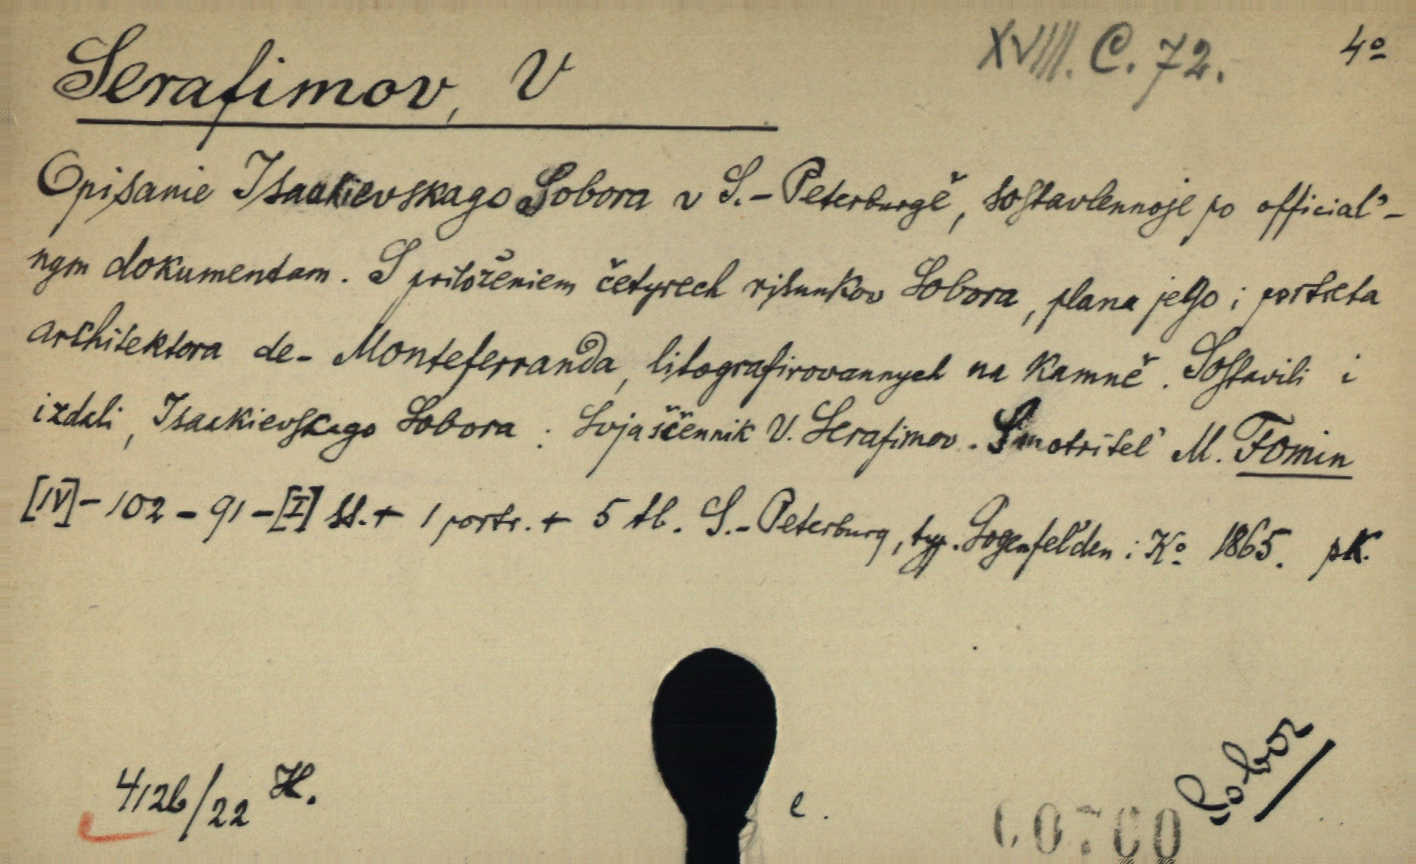 Serafimov, V
XVIII. C. 72.
4º
Opisanie Isaakievskago Sobora v S.-Peterburgě, sostavlennoje po official'-
nym dokumentam. S priložěniem četyrech risunkov Sobora, plana jego i portreta
architektora de-Monteferranda, litografirovannych na kamně. Sostavili i
izdali, Isaakievskago Sobora: Svjaščennik V. Serafimov. Smotritel' M. Fomin
[IV]-102-91-[I] ss. + 1 portr. + 5 tb. S.-Peterburg, typ. Gogenfel'den i Kº 1865. pk.
4126/22 H.
e.
Sobor